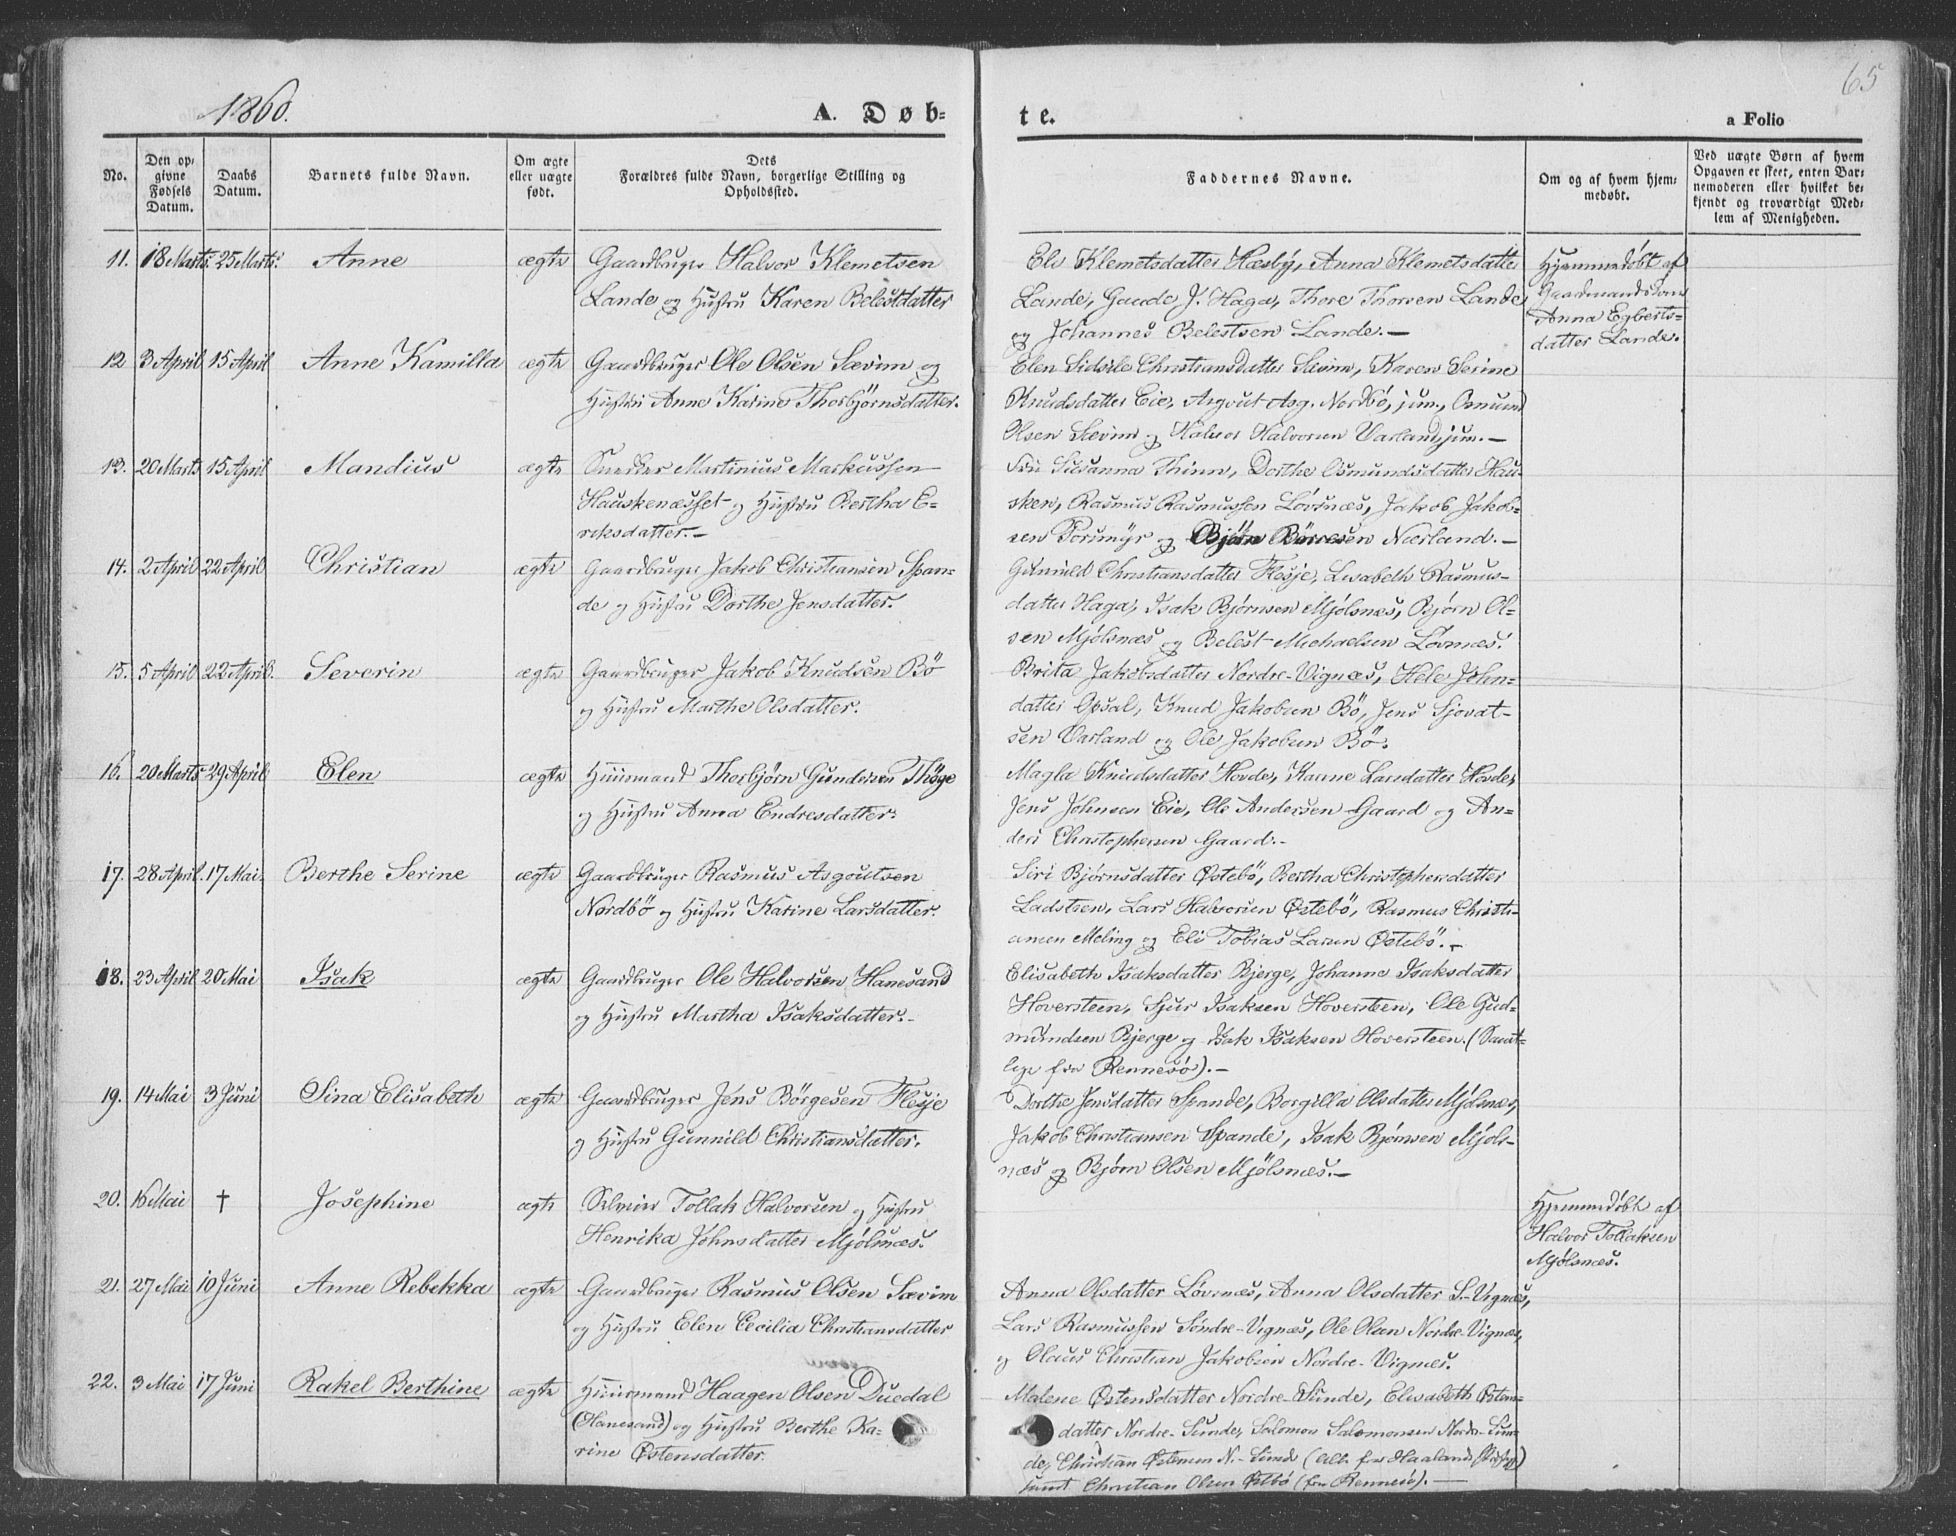 1860.
A. Døb-
te.
65
a Folio
No.
Den op-
givne
Fødsels
Datum.
Daabs
Datum.
Barnets fulde Navn.
Om ægte
eller uægte
født.
Dets
Forældres fulde Navn, borgerlige Stilling og
Opholdssted.
Faddernes Navne.
Om og af hvem hjem-
medøbt.
Ved uægte Børn af hvem
Opgaven er skeet, enten Bar-
nemoderen eller hvilket be-
kjendt og troværdigt Med-
lem af Menigheden.
11. 18 Marts. 25 Marts. Anne ægte Gaardbruger Halvor Klemetsen
Lande og Hustru Karen Belestdatter
Eli Klemetsdatter Hæsby, Anna Klemetsdatter
Lande, Gaude J. Haga, Thore Thorsen Lande,
og Johannes Belestsen Lande.—
Hjemmedøbt af
Gaardmandskone
Anna Egberts-
datter Lande.
12 3 April 15 April Anne Kamilla ægte Gaardbruger Ole Olsen Sævim og
Hustru Anne Karine Thorbjörnsdatter.
Elen Sidsele Christiansdatter Sævim, Karen Serine
Knudsdatter Eie, Asgout Asg. Nordbö, jun., Osmund
Olsen Sævim og Halvor Halvorsen Varland jun.—
13. 20 Marts 15 April Mandius ægte Snedker Martinius Markussen
Hauskenæsset og Hustru Bertha E-
riksdatter.—
Fru Susanna Thinn, Dorthe Osmundsdatter Hau-
sken, Rasmus Rasmussen Lövsnæs, Jakob Jakob-
sen Porsmyr og Bjørn Börresen Nærland.—
14. 2 April 22 April Christian ægte Gaardbruger Jakob Christiansen Span-
de og Hustru Dorthe Jensdatter.
Gunnild Christiansdatter Flesje, Lisabeth Rasmus-
datter Haga, Isak Bjørnsen Mjølsnæs, Bjørn Ol-
sen Mjølsnæs og Belest Michaelsen Løvsnæs.
15. 5 April 22 April. Severin ægte Gaardbruger Jakob Knudsen Bö
og Hustru Marthe Olsdatter.
Brita Jakobsdatter Nordre-Vignæs, Hele John-
datter Opsal, Knud Jakobsen Bö, Jens Sjovat-
sen Varland og Ole Jakobsen Bö.
16. 20 Marts 29 April Elen ægte Huusmand Thorbjörn Gundersen Thöge
og Hustru Anna Endresdatter.
Magla Knudsdatter Hovde, Hanne Larsdatter Hovde,
Jens Johnsen Eie, Ole Andersen Gaard og An-
ders Christophersen Gaard.—
17. 28 April. 17 Mai. Berthe Serine ægte Gaardbruger Rasmus Asgoutsen
Nordbö og Hustru Karine Larsdatter.
Siri Bjørnsdatter Østebö, Bertha Christophersdatter
Ladsteen, Lars Halvorsen Østebö, Rasmus Christi-
ansen Meling og Eli Tobias Larsen Østebö.—
18. 23 April 20 Mai Isak ægte Gaardbruger Ole Halvorsen Hanesand
og Hustru Martha Isaksdatter.—
Elisabeth Isaksdatter Bjerge, Johanna Isaksdatter
Hoversteen, Sjur Isaksen Hoversteen, Ole Gud-
mundsen Bjerge og Isak Isaksen Hoversteen. (Samt-
lige fra Rennesö).—
19. 14 Mai 3 Juni Sina Elisabeth ægte Gaardbruger Jens Börgesen Flesje
og Hustru Gunnild Christiansdatter.
Dorthe Jensdatter Spande, Borgilla Olsdatter Mjölsnæs,
Jakob Christiansen Spande, Isak Bjørnsen Mjöls-
næs og Bjørn Olsen Mjölsnæs.—
20. 16 Mai † Josephine ægte Selveier Tollak Halvorsen og Hustru
Henrika Johnsdatter Mjölsnæs.
Hjemmedøbt af
Halvor Tollaksen
Mjølsnæs.
21. 27 Mai 10 Juni Anne Rebekka ægte Gaardbruger Rasmus Olsen Sævim
og Hustru Elen Cecilia Christiansdatter
Anna Olsdatter Lövsnæs, Anna Olsdatter S.-Vignæs,
Lars Rasmussen Söndre-Vignæs, Ole Olsen Nordre-Vignæs,
og Olaus Christian Jakobsen Nordre-Vignæs.
22. 3 Mai 17 Juni Rakel Berthine ægte Huusmand Haagen Olsen Duedal
(Hanesand) og Hustru Berthe Ka-
rine Østensdatter.
Malene Østensdatter Nordre-Sunde, Elisabeth Østens-
datter Nordre-Sunde, Salomon Salomonsen Nordre-Sun-
de, Christian Østensen N.-Sunde (alle fra Haalands Præstegj.)
samt Christian Olsen Østbö (fra Rennesö).—